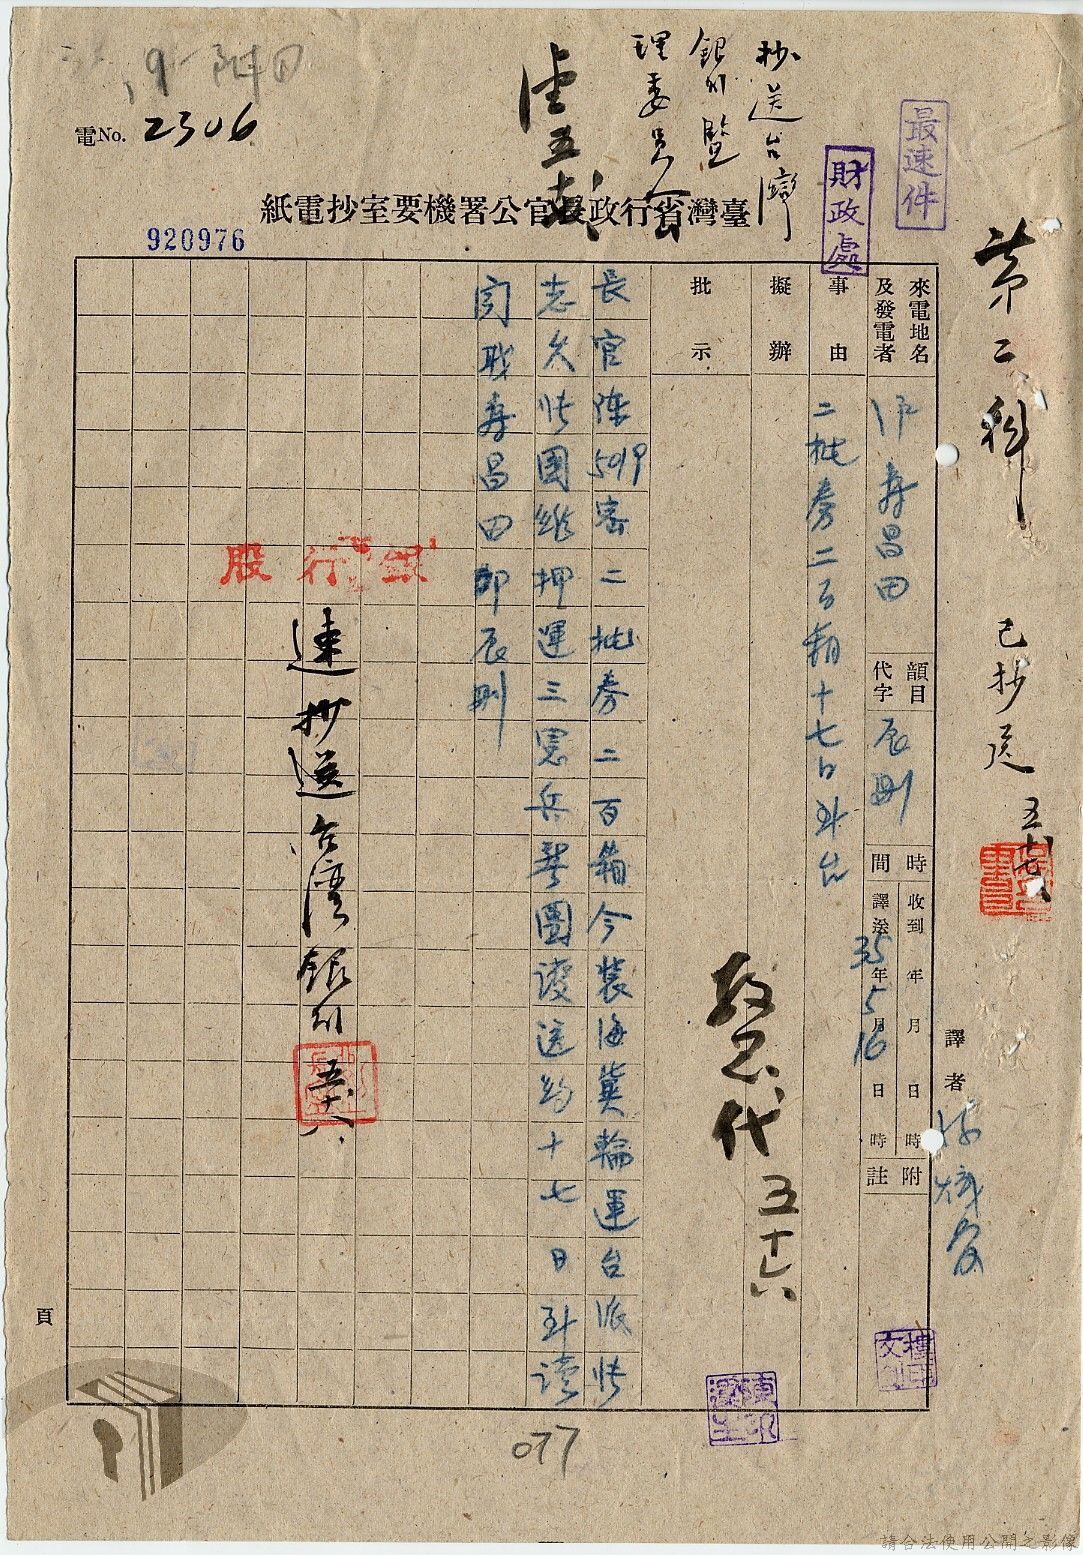 電No. 2306
抄送台灣
銀行監
理委員會
最速件
財政處
臺灣省行政長官公署機要室抄電紙
920976
第二科
已抄送
來電地名
及發電者
滬 壽昌田
韻目
代字
辰删
時間
收到 年 月 日 時
譯送 35年5月16日 時
附註
譯者
事由
二批券二百箱十七日到台
擬辦
批示
長官陳5019密二批券二百箱今裝海冀輪運台派張
志久張國維押運三憲兵警團護送約十七日到讀
閔耿壽昌田即辰删
銀行股
速抄送台灣銀行
五十六
頁
077
請合法使用公開之影像